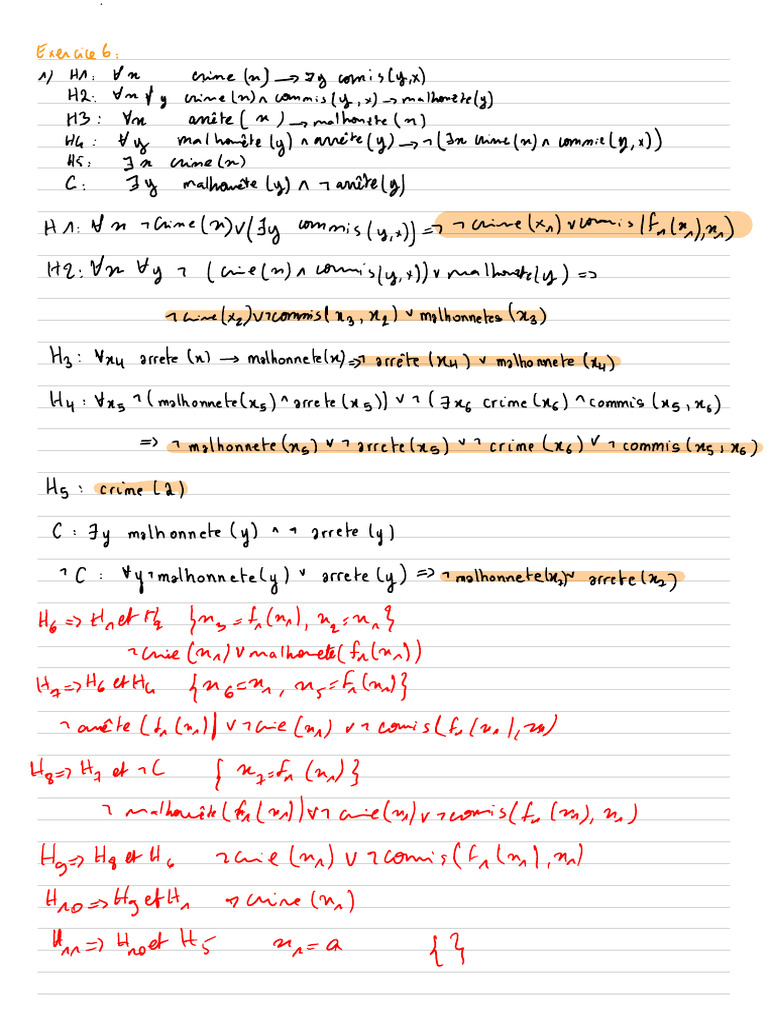 Exercice 6:
1) H1: ∀x crime(x) → ∃y comis(y,x)
H2: ∀x ∀y crime(x) ∧ commis(y,x) → malhonête(y)
H3: ∀x arrête(x) → malhonête(x)
H4: ∀y malhonête(y) ∧ arrête(y) → ¬(∃x crime(x) ∧ commie(y,x))
H5: ∃x crime(x)
C: ∃y malhonête(y) ∧ ¬arrête(y)
H1: ∀x ¬crime(x) ∨ (∃y commis(y,x)) => ¬crime(x₁) ∨ comis(f₁(x₁),x₁)
H2: ∀x ∀y ¬(crie(x) ∧ commis(y,x)) ∨ malhonete(y) =>
¬crime(x₂) ∨ ¬commis(x₃, x₂) ∨ malhonnetes(x₃)
H₃: ∀x₄ arrete(x) → malhonnete(x) => ¬arrête(x₄) ∨ malhonnete(x₄)
H₄: ∀x₅ ¬(malhonnete(x₅) ∧ arrete(x₅)) ∨ ¬(∃x₆ crime(x₆) ∧ commis(x₅,x₆)
=> ¬malhonnete(x₅) ∨ ¬arrete(x₅) ∨ ¬crime(x₆) ∨ ¬commis(x₅,x₆)
H₅: crime(a)
C: ∃y malhonnete(y) ∧ ¬arrete(y)
¬C: ∀y ¬malhonnete(y) ∨ arrete(y) => ¬malhonnete(x₇) ∨ arrete(x₇)
H₆ => H₁ et H₂ {x₃=f₁(x₁), x₂=x₁}
¬crie(x₁) ∨ malhonete(f₁(x₁))
H₇ => H₆ et H₄ {x₆=x₁, x₅=f₁(x₁)}
¬arrête(f₁(x₁)) ∨ ¬crie(x₁) ∨ ¬comis(f₁(x₁),x₁)
H₈ => H₇ et ¬C {x₇=f₁(x₁)}
¬malhonête(f₁(x₁)) ∨ ¬crie(x₁) ∨ ¬comis(f₁(x₁), x₁)
H₉ => H₈ et H₆ ¬crie(x₁) ∨ ¬comis(f₁(x₁),x₁)
H₁₀ => H₉ et H₁ ¬crime(x₁)
H₁₁ => H₁₀ et H₅ x₁=a { }